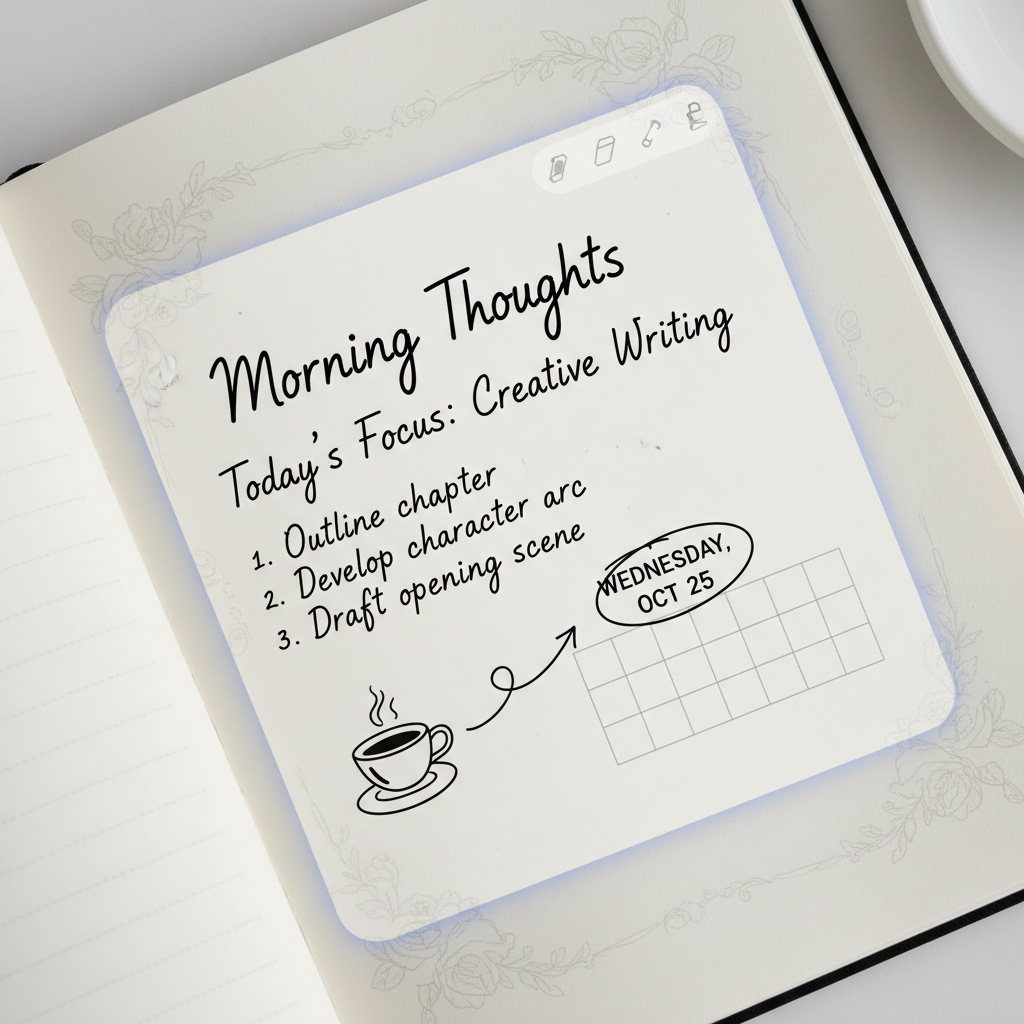 Morning Thoughts
Today's Focus: Creative Writing
1. Outline chapter
2. Develop character arc
3. Draft opening scene
WEDNESDAY,
OCT 25